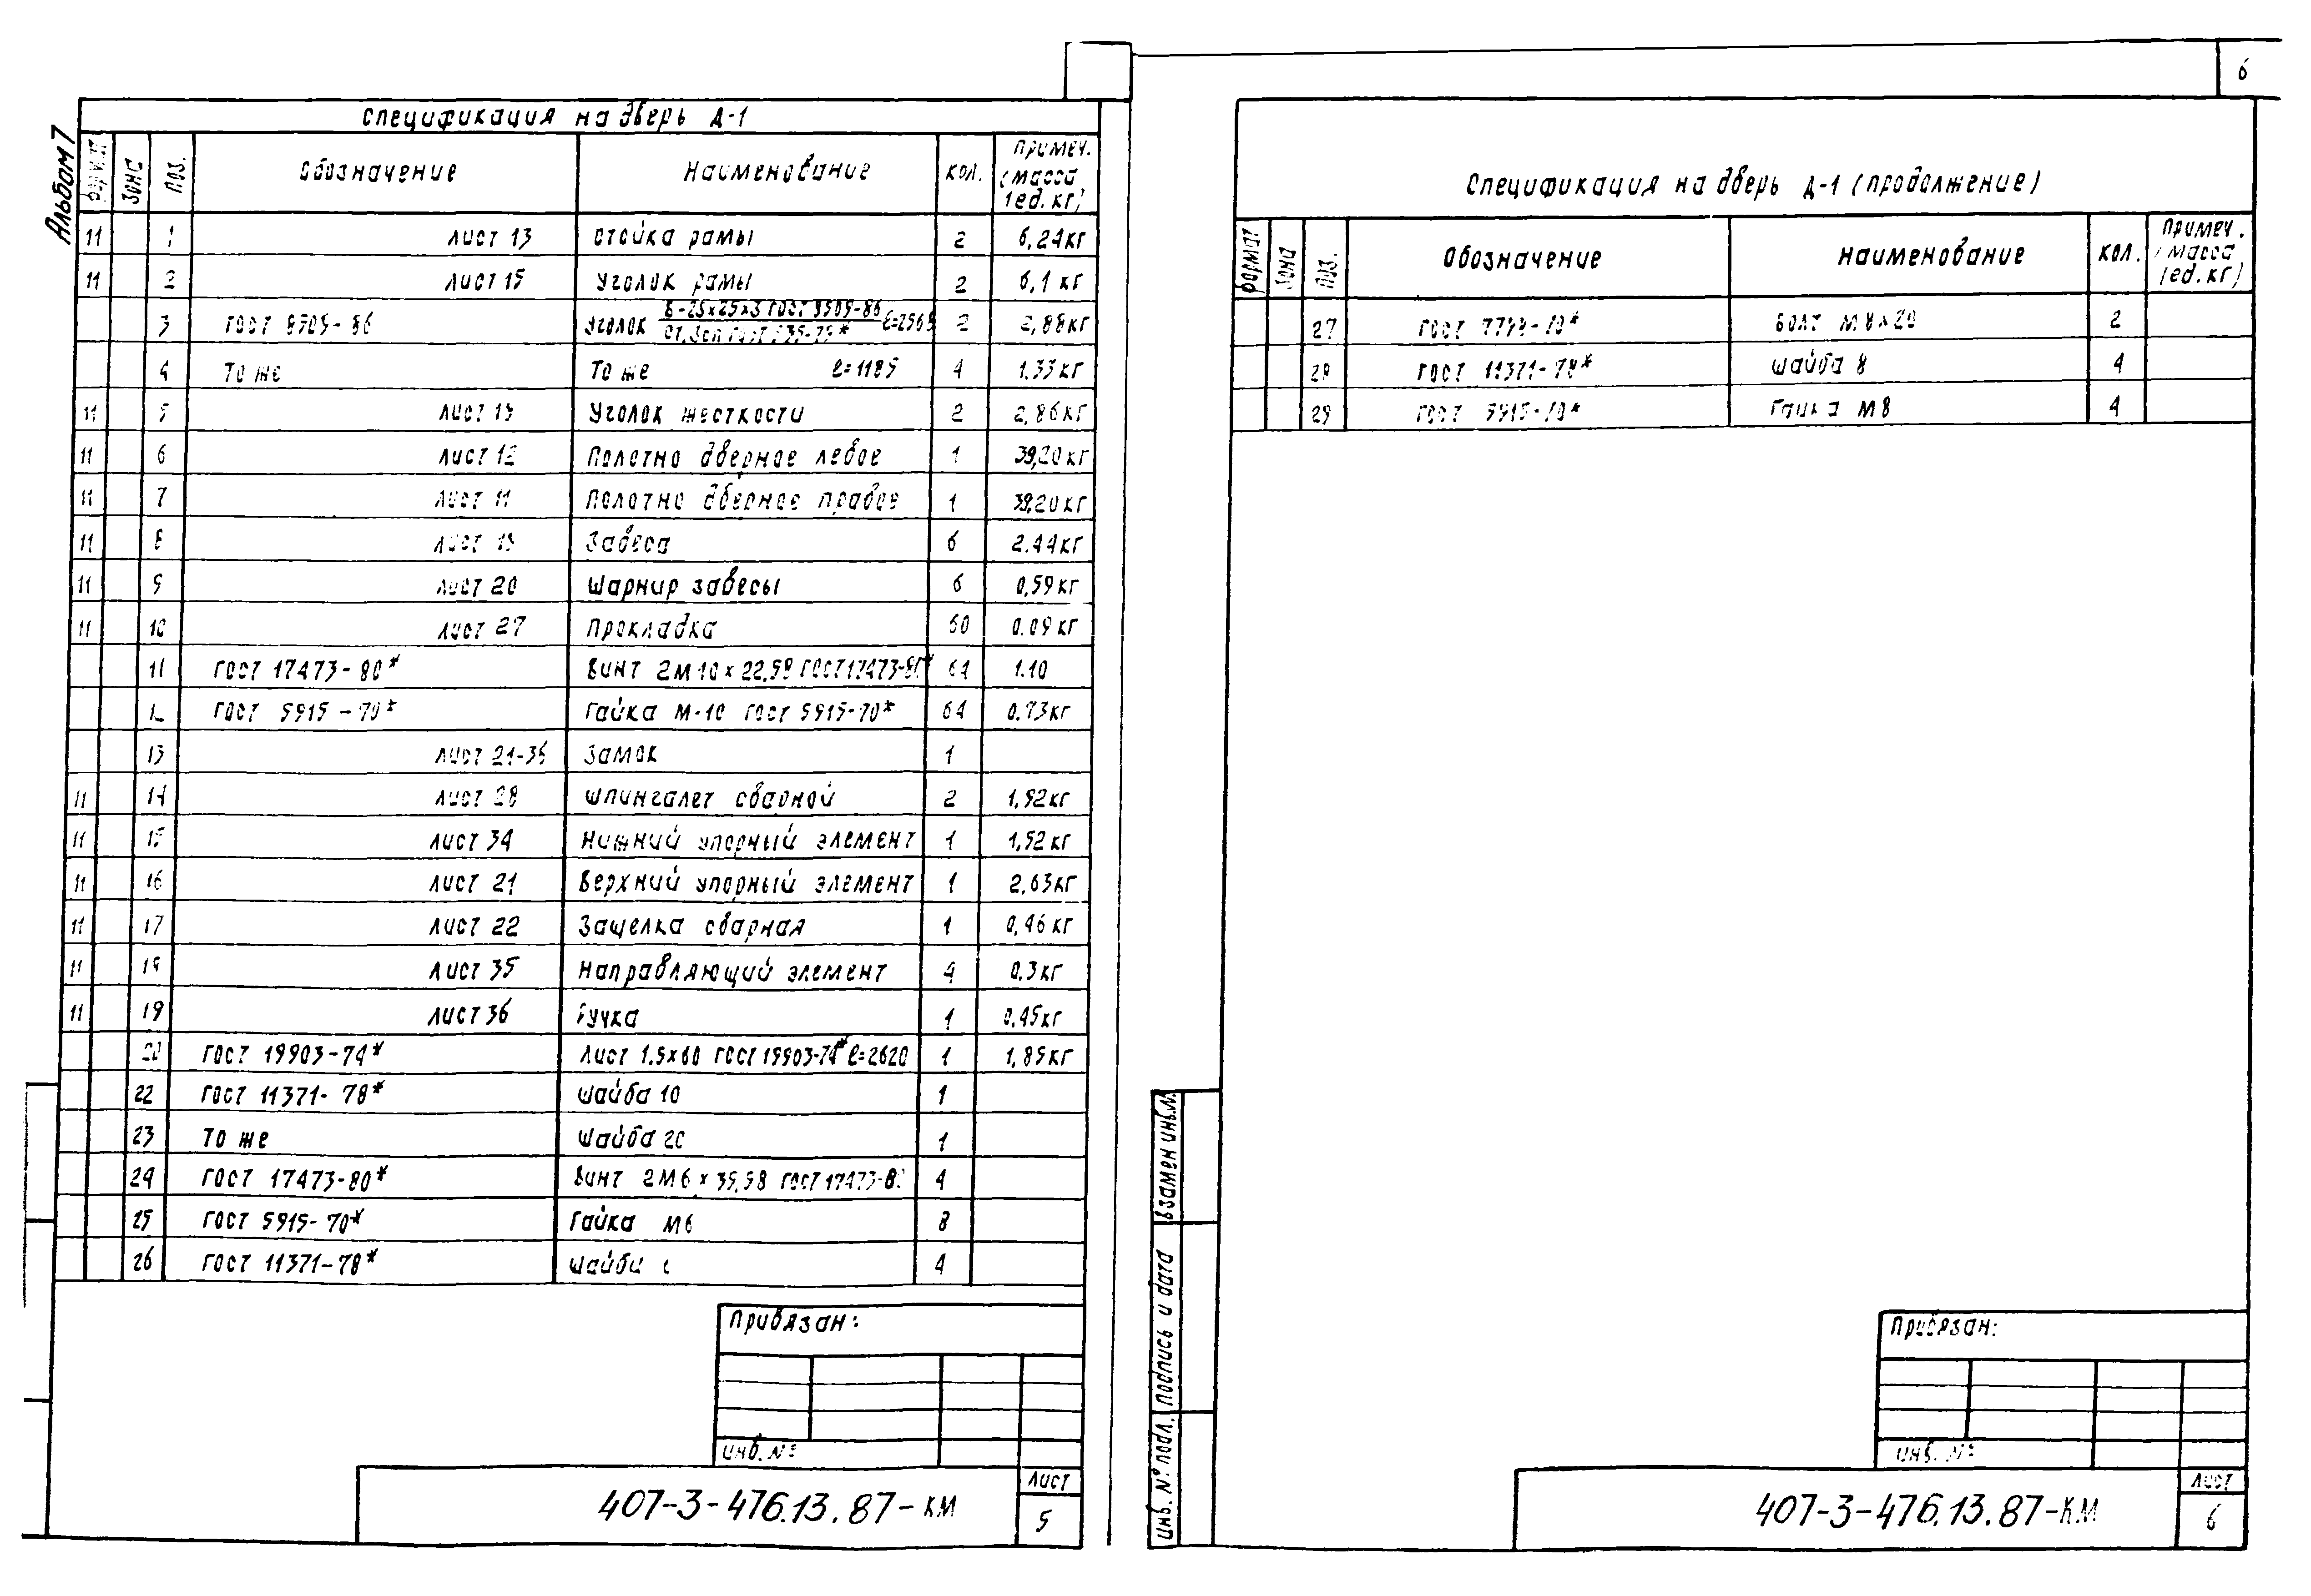 Альбом 7
6
Спецификация на дверь Д-1
Формат Зона Поз. Обозначение Наименование Кол. Примеч. (масса 1ед. кг)
11 1 Лист 13 Стойка рамы 2 6,24кг
11 2 Лист 15 Уголок рамы 2 6,1 кг
3 ГОСТ 8509-86 Уголок Б-25х25х3 ГОСТ 8509-86 2 2,88кг
4 То же То же ℓ=1185 4 1.33кг
11 5 Уголок жесткости 2 2,86кг
11 6 Лист 12 Полотно дверное левое 1 39,20кг
11 7 Лист 11 Полотно дверное правое 1 39,20кг
11 8 Завеса 6 2.44кг
11 9 Лист 20 Шарнир завесы 6 0,59кг
11 10 Лист 27 Прокладка 60 0.09кг
11 ГОСТ 17473-80* Винт 2М10х22,58 ГОСТ 17473-80* 64 1.10
12 ГОСТ 5915-70* Гайка М-10 ГОСТ 5915-70* 64 0.73кг
13 Замок 1
11 14 Лист 28 Шпингалет сварной 2 1,92кг
11 15 Лист 34 Нижний упорный элемент 1 1,52кг
11 16 Лист 21 Верхний упорный элемент 1 2,63кг
11 17 Лист 22 Защелка сварная 1 0,46кг
11 18 Лист 35 Направляющий элемент 4 0.3кг
11 19 Лист 36 Ручка 1 0,45кг
20 ГОСТ 19903-74* Лист 1.5х60 ГОСТ 19903-74* ℓ=2620 1 1,85кг
22 ГОСТ 11371-78* Шайба 10 1
23 То же Шайба 20 1
24 ГОСТ 17473-80* Винт 2М6х35,58 ГОСТ 17473-80 4
25 ГОСТ 5915-70* Гайка М6 8
26 ГОСТ 11371-78* Шайба 4
Привязан:
Инв. №
407-3-476.13.87-КМ
Лист
5
Спецификация на дверь Д-1 (продолжение)
Формат Зона Поз. Обозначение Наименование Кол. Примеч. (масса 1ед. кг)
27 ГОСТ 7798-70* Болт М8х20 2
28 ГОСТ 11371-78* Шайба 8 4
29 ГОСТ 5915-70* Гайка М8 4
Инв. № подл. Подпись и дата Взамен инв.№
Привязан:
Инв. №
407-3-476.13.87-КМ
Лист
6